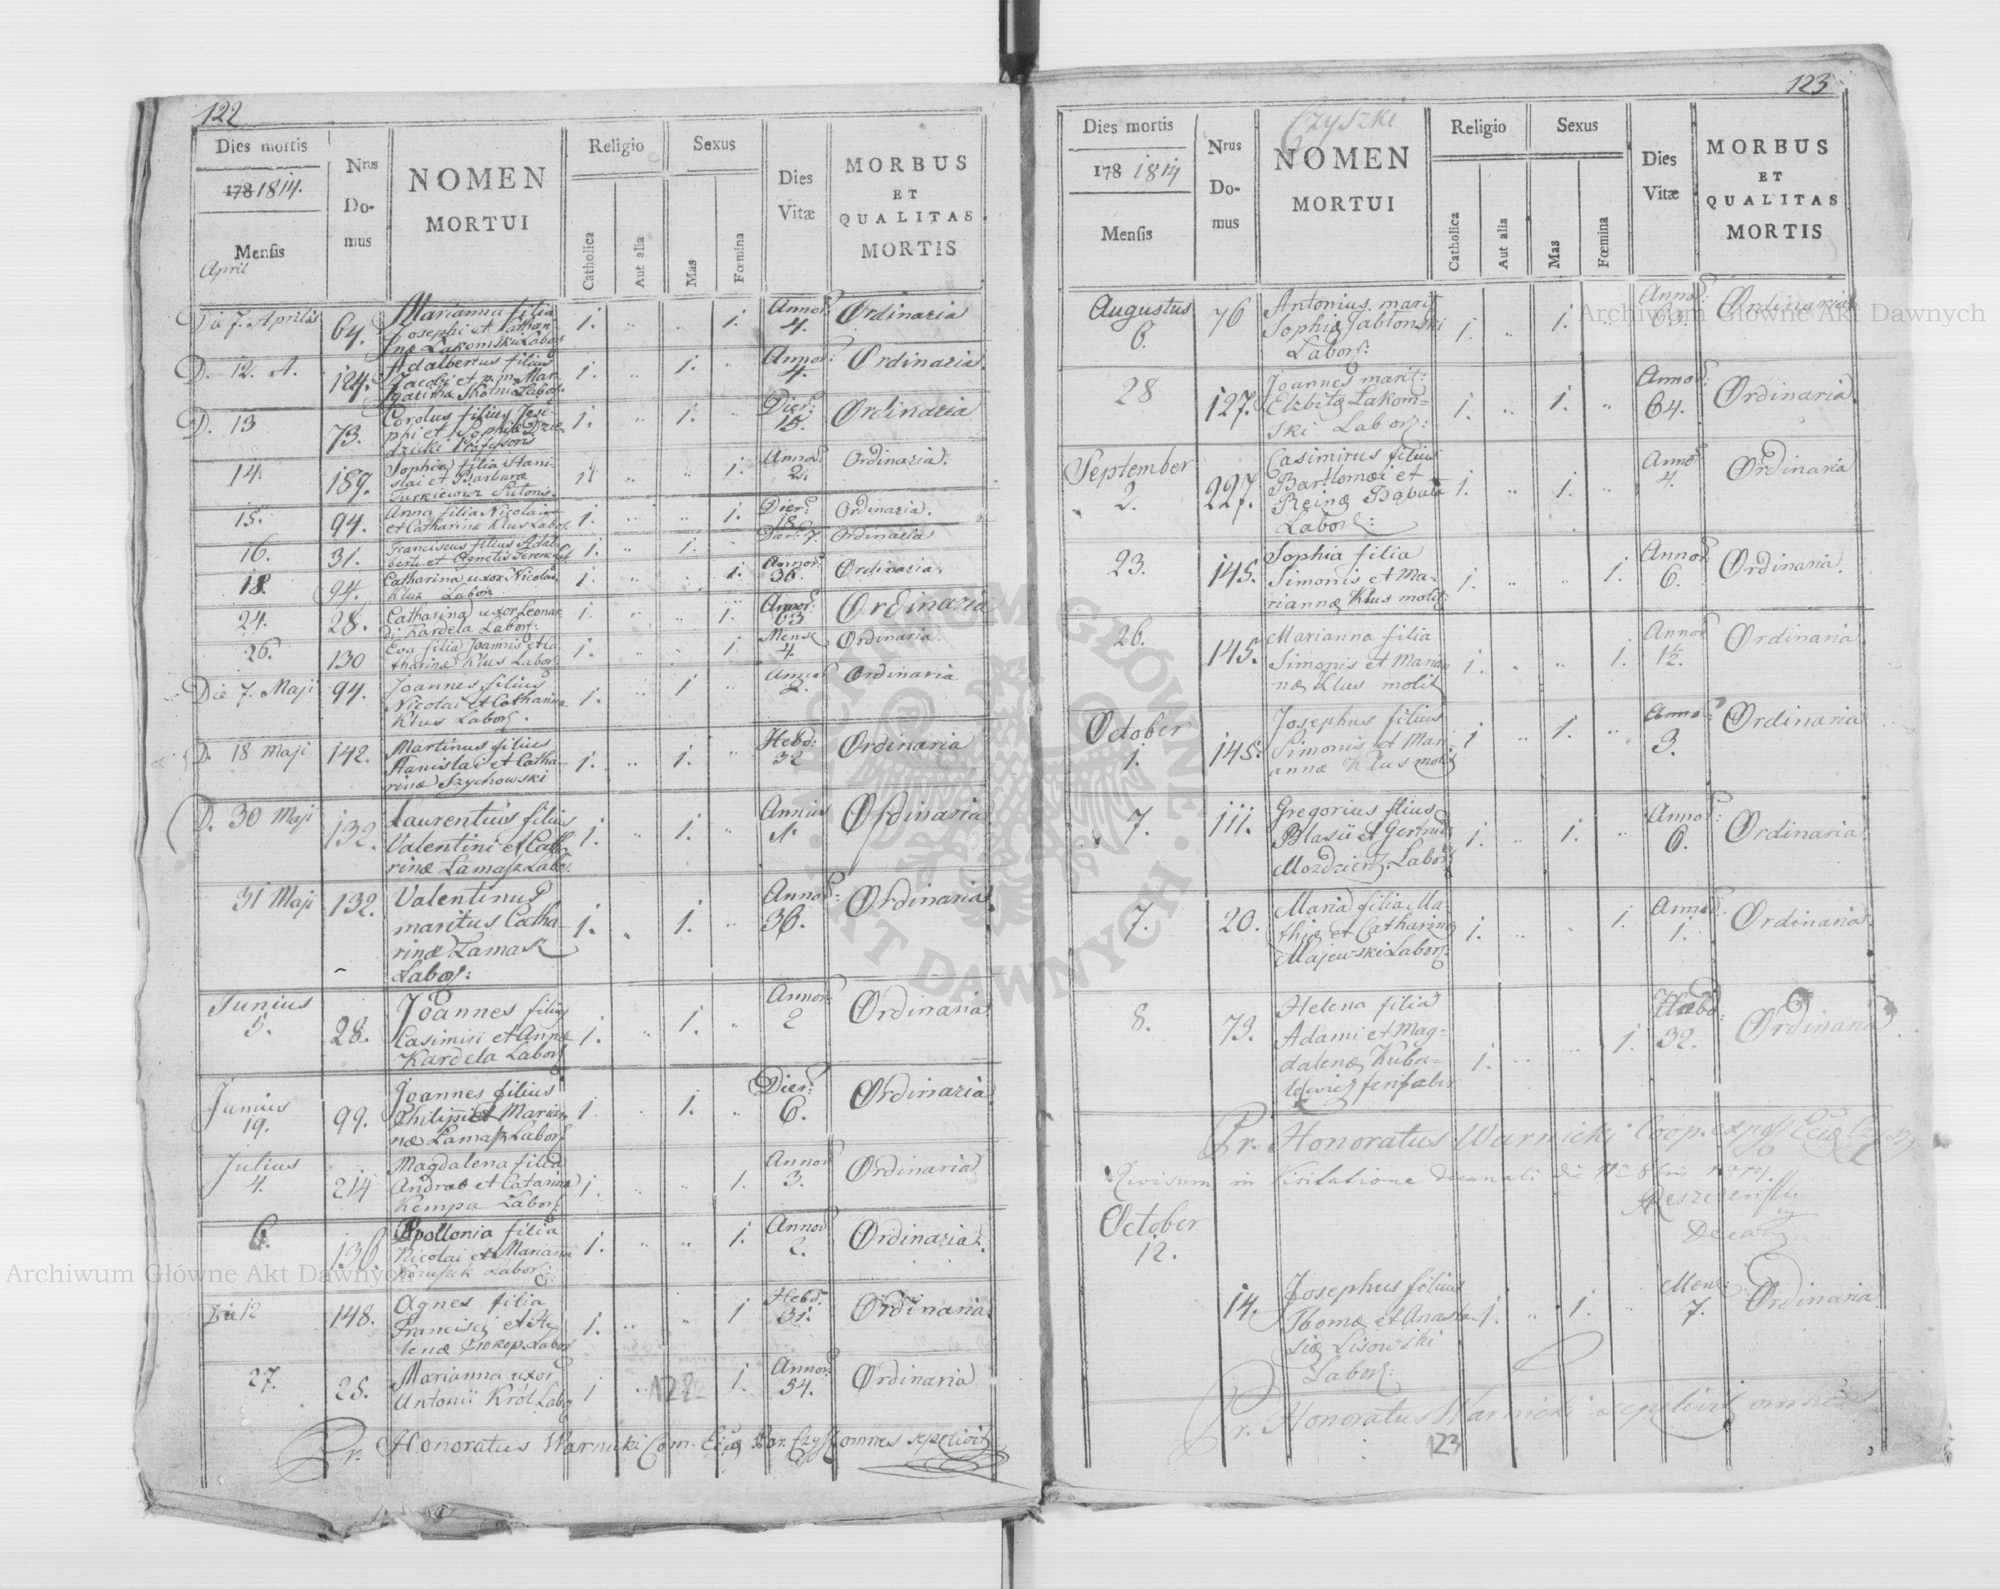 122
Dies mortis
178 1814.
Mensis
April
Nrus
Do-
mus
NOMEN
MORTUI
Religio
Catholica
Aut alia
Sexus
Mas
Fœmina
Dies
Vitæ
MORBUS
ET
QUALITAS
MORTIS
Die 7. Aprilis 64. Marianna filia 1. " " 1. Annor: 4. Ordinaria
Josephi et Cathari
næ Łakomski Labor
D. 12. A. 124. Adalbertus filius 1. " 1. " Annor: 4. Ordinaria.
Jacobi et
D. 13 73. Carolus filius Jose- 1. " 1. " Dier: 15. Ordinaria
phi et Sophiæ
14. 189. Sophia filia Stani- " " 1. Annor: 2. Ordinaria.
slai et Barbaræ
Turkiewicz Sutoris.
15. 94. Anna filia Nicolai 1. " " 1. Dier: 18. Ordinaria.
et Catharinæ Klus Labor.
16. 31. Franciscus filius Adal- 1. " 1. " Dier: 7. Ordinaria
berti et Agnetis
18. 94. Catharina uxor Nicolai 1. " " 1. Annor: 36. Ordinaria.
Klus Labor
24. 28. Catharina uxor Leonar 1. " " 1. Annor: 63 Ordinaria
di Kardela Labor:
26. 130 Eva filia Joannis et Ca 1. " " 1. Mens 4. Ordinaria.
tharinæ Klus Labor
Die 7. Maji 94. Joannes filius 1. " 1 " Ordinaria
Nicolai et Catharinæ
Klus Labor.
D. 18 Maji 142. Martinus filius 1. " 1. " Hebd: 32 Ordinaria
Stanislai et Catha-
rinæ Szychowski
D. 30 Maji 132. Laurentius filius 1. " 1. " Annus 1. Ordinaria
Valentini et Cath
rinæ Lamasz Labor.
31 Maji 132. Valentinus 1. " 1. Annor: 36. Ordinaria.
maritus Catha-
rinæ Lamasz
Labor:
Junius
5. 28. Joannes filius 1. " 1. " Annor: 2 Ordinaria
Casimiri et Annæ
Kardela Labor
Junius
19. 99. Joannes filius 1. " 1. " Dier: 6. Ordinaria.
Philippi et Marian
næ Lamasz Labor
Julius
4. 214 Magdalena filia 1. " " 1. Annor 3. Ordinaria
Andreæ et Catarinæ
Kempa Labor
6. 136 Apollonia filia 1. " " 1. Annor 2. Ordinaria.
Nicolai et Mariannæ
Labor:
Die 12 148. Agnes filia 1. " " 1 Hebd. 31. Ordinaria.
Francisci et He
lenæ Prokop. Labor
27. 25. Marianna uxor 1 " 1. Annor: 54. Ordinaria
Antonii Król Labor
122
Pr. Honoratus Warnicki Com. Eccl Par. Czysz omnes sepelivit
123
Czyszki
Dies mortis
178 1814
Mensis
Nrus
Do-
mus
NOMEN
MORTUI
Religio
Catholica
Aut alia
Sexus
Mas
Fœmina
Dies
Vitæ
MORBUS
ET
QUALITAS
MORTIS
Augustus
6. 76 Antonius marit 1. " 1. " Annor: 65. Ordinaria
Sophiæ Jabłonski
Labor:
28 127. Joannes marit: 1. " 1. " Annor: 64. Ordinaria.
Elzbitæ Łakom-
ski Labor:
September
2. 227. Casimirus filius 1. " 1. " Annor 4. Ordinaria
Bartlomæi et
Reinæ
Labor:
23. 145. Sophia filia 1. " " 1. Annor. 6. Ordinaria.
Simonis et Ma-
riannæ Klus molit:
26. 145. Marianna filia 1. " " 1. Annor 1½. Ordinaria
Simonis et Marian
næ Klus molit
October
1. 145. Josephus filius 1 " 1. " Anno: 3. Ordinaria
Simonis et Mari
annæ Klus molit
7. 111. Gregorius filius 1. " 1. " Annor: 6. Ordinaria
Blasii et Gertrud
Mozdzierz Labor
7. 20. Maria filia Ma- 1. " " 1. Annor: 1. Ordinaria.
thiæ et Catharinæ
Majewski Labor:
8. 73. Helena filia 1. " " 1. Hebd: 32. Ordinaria
Adami et Mag-
dalenæ Kuba-
lewicz ferifaber
Pr. Honoratus Warnicki Coop. expos Eccl
Revisum in Visitatione decanali
Decan
October
12.
14. Josephus filius 1. " 1. " Mens: 7. Ordinaria
Thomæ et Anasta-
siæ Lisowski
Labor:
Pr. Honoratus Warnicki sepelivit omnes
123
Archiwum Główne Akt Dawnych
Archiwum Główne Akt Dawnych
ARCHIWUM GŁÓWNE
AKT DAWNYCH